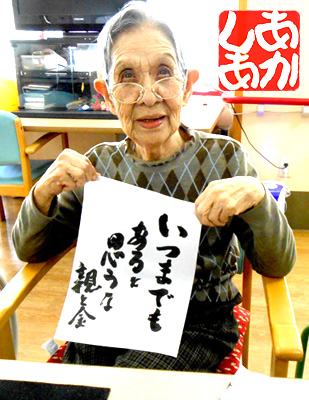 いつまでも
あると
思うな
親と金
あか
しあ